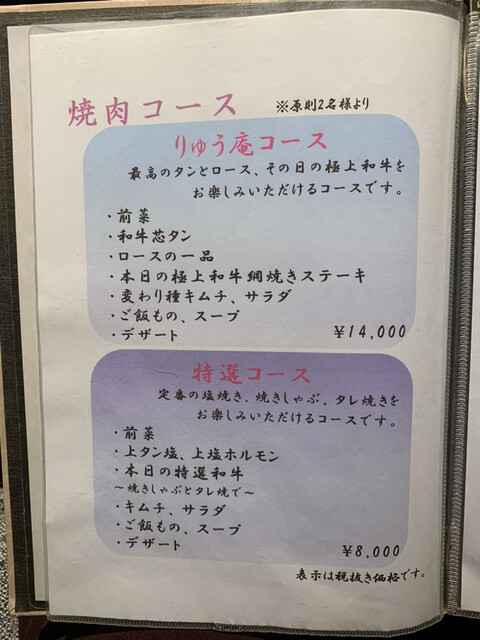 焼肉コース ※原則2名様より
りゅう庵コース
最高のタンとロース、その日の極上和牛を
お楽しみいただけるコースです。
・前菜
・和牛芯タン
・ロースの一品
・本日の極上和牛網焼きステーキ
・変わり種キムチ、サラダ
・ご飯もの、スープ
・デザート ￥14,000
特選コース
定番の塩焼き、焼きしゃぶ、タレ焼きを
お楽しみいただけるコースです。
・前菜
・上タン塩、上塩ホルモン
・本日の特選和牛
～焼きしゃぶとタレ焼で～
・キムチ、サラダ
・ご飯もの、スープ
・デザート ￥8,000
表示は税抜き価格です。